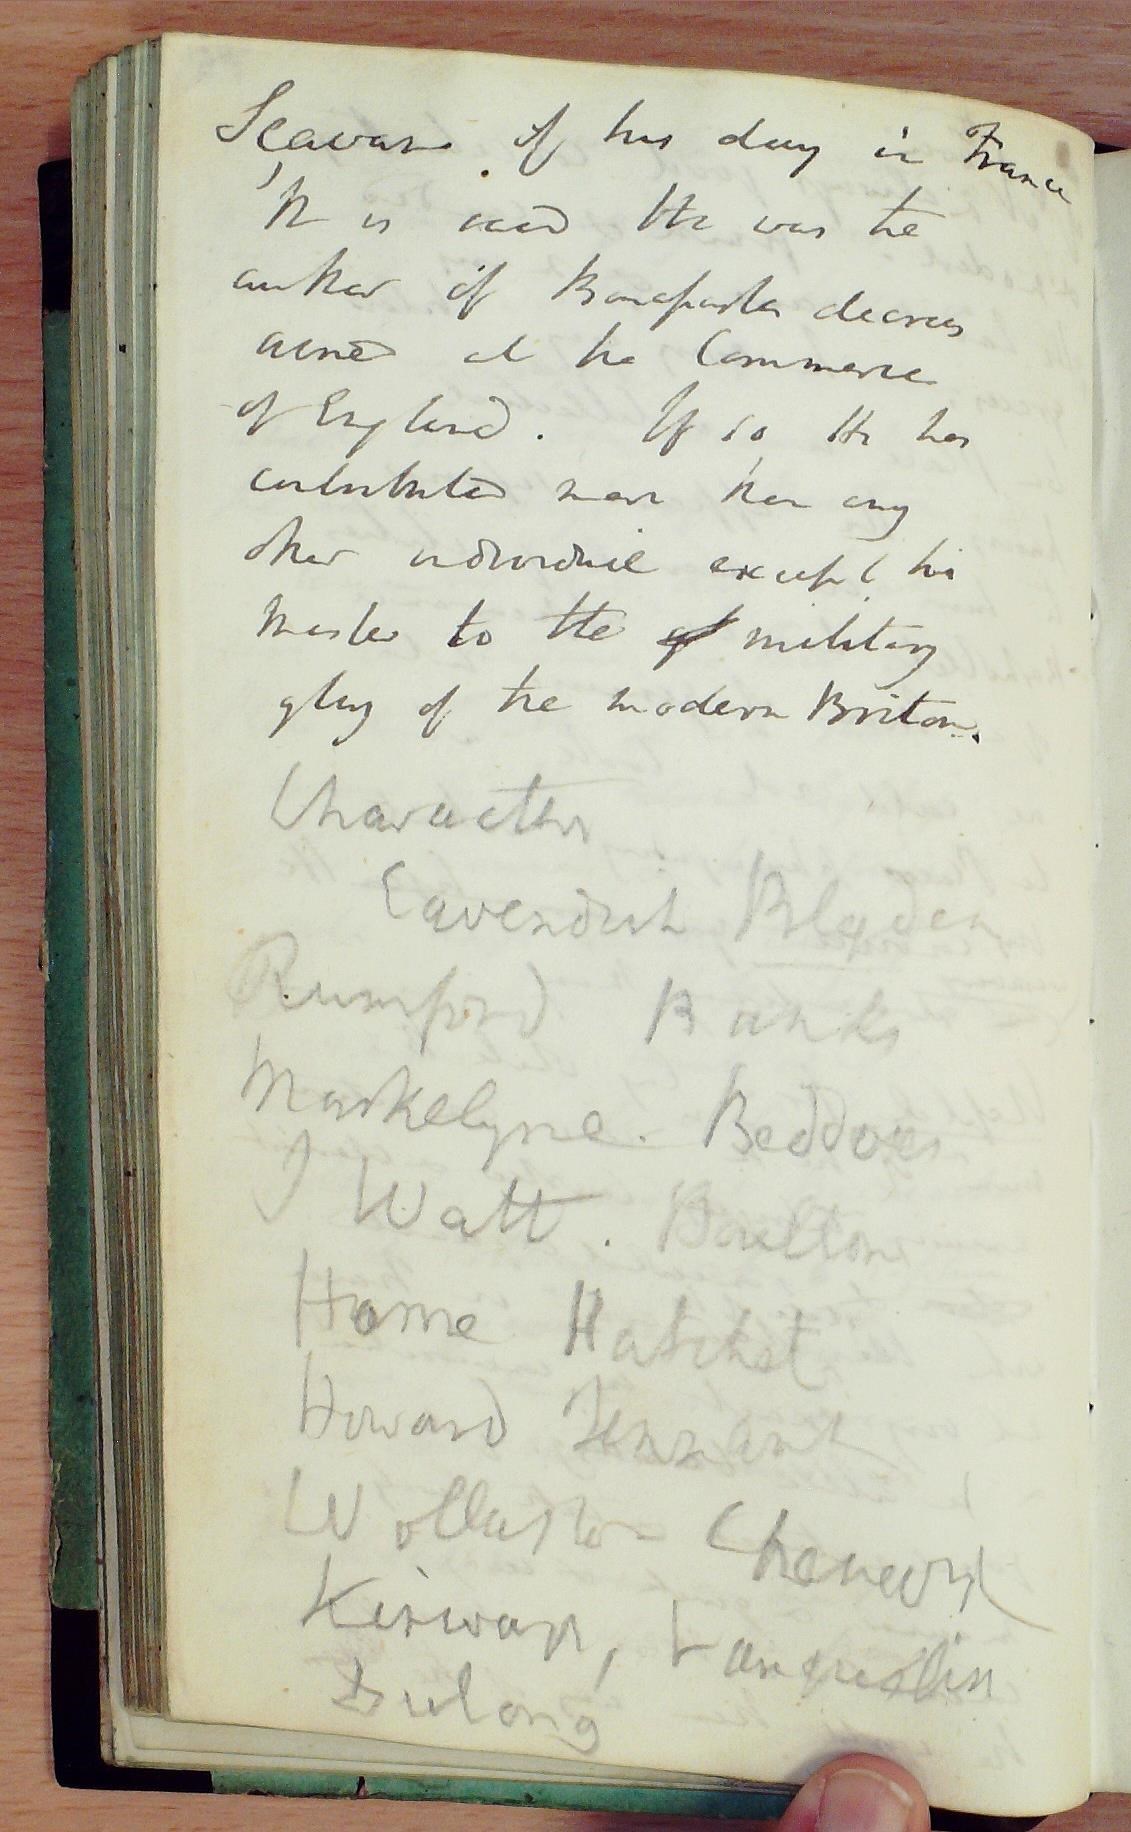 Scavans of his day in France
It is said He was the
author of Bonapartes decrees
aimed at the Commerce
of England. If so He has
contributed more than any
other individual except his
Master to the military
glory of the modern Britons.
Characters
Cavendish Blagden
Rumford Banks
Maskelyne. Beddoes
J Watt. Boulton
Home Hatchet
Howard Tennant
Wollaston Chenevix
Kirwan, Vauquelin
Dulong